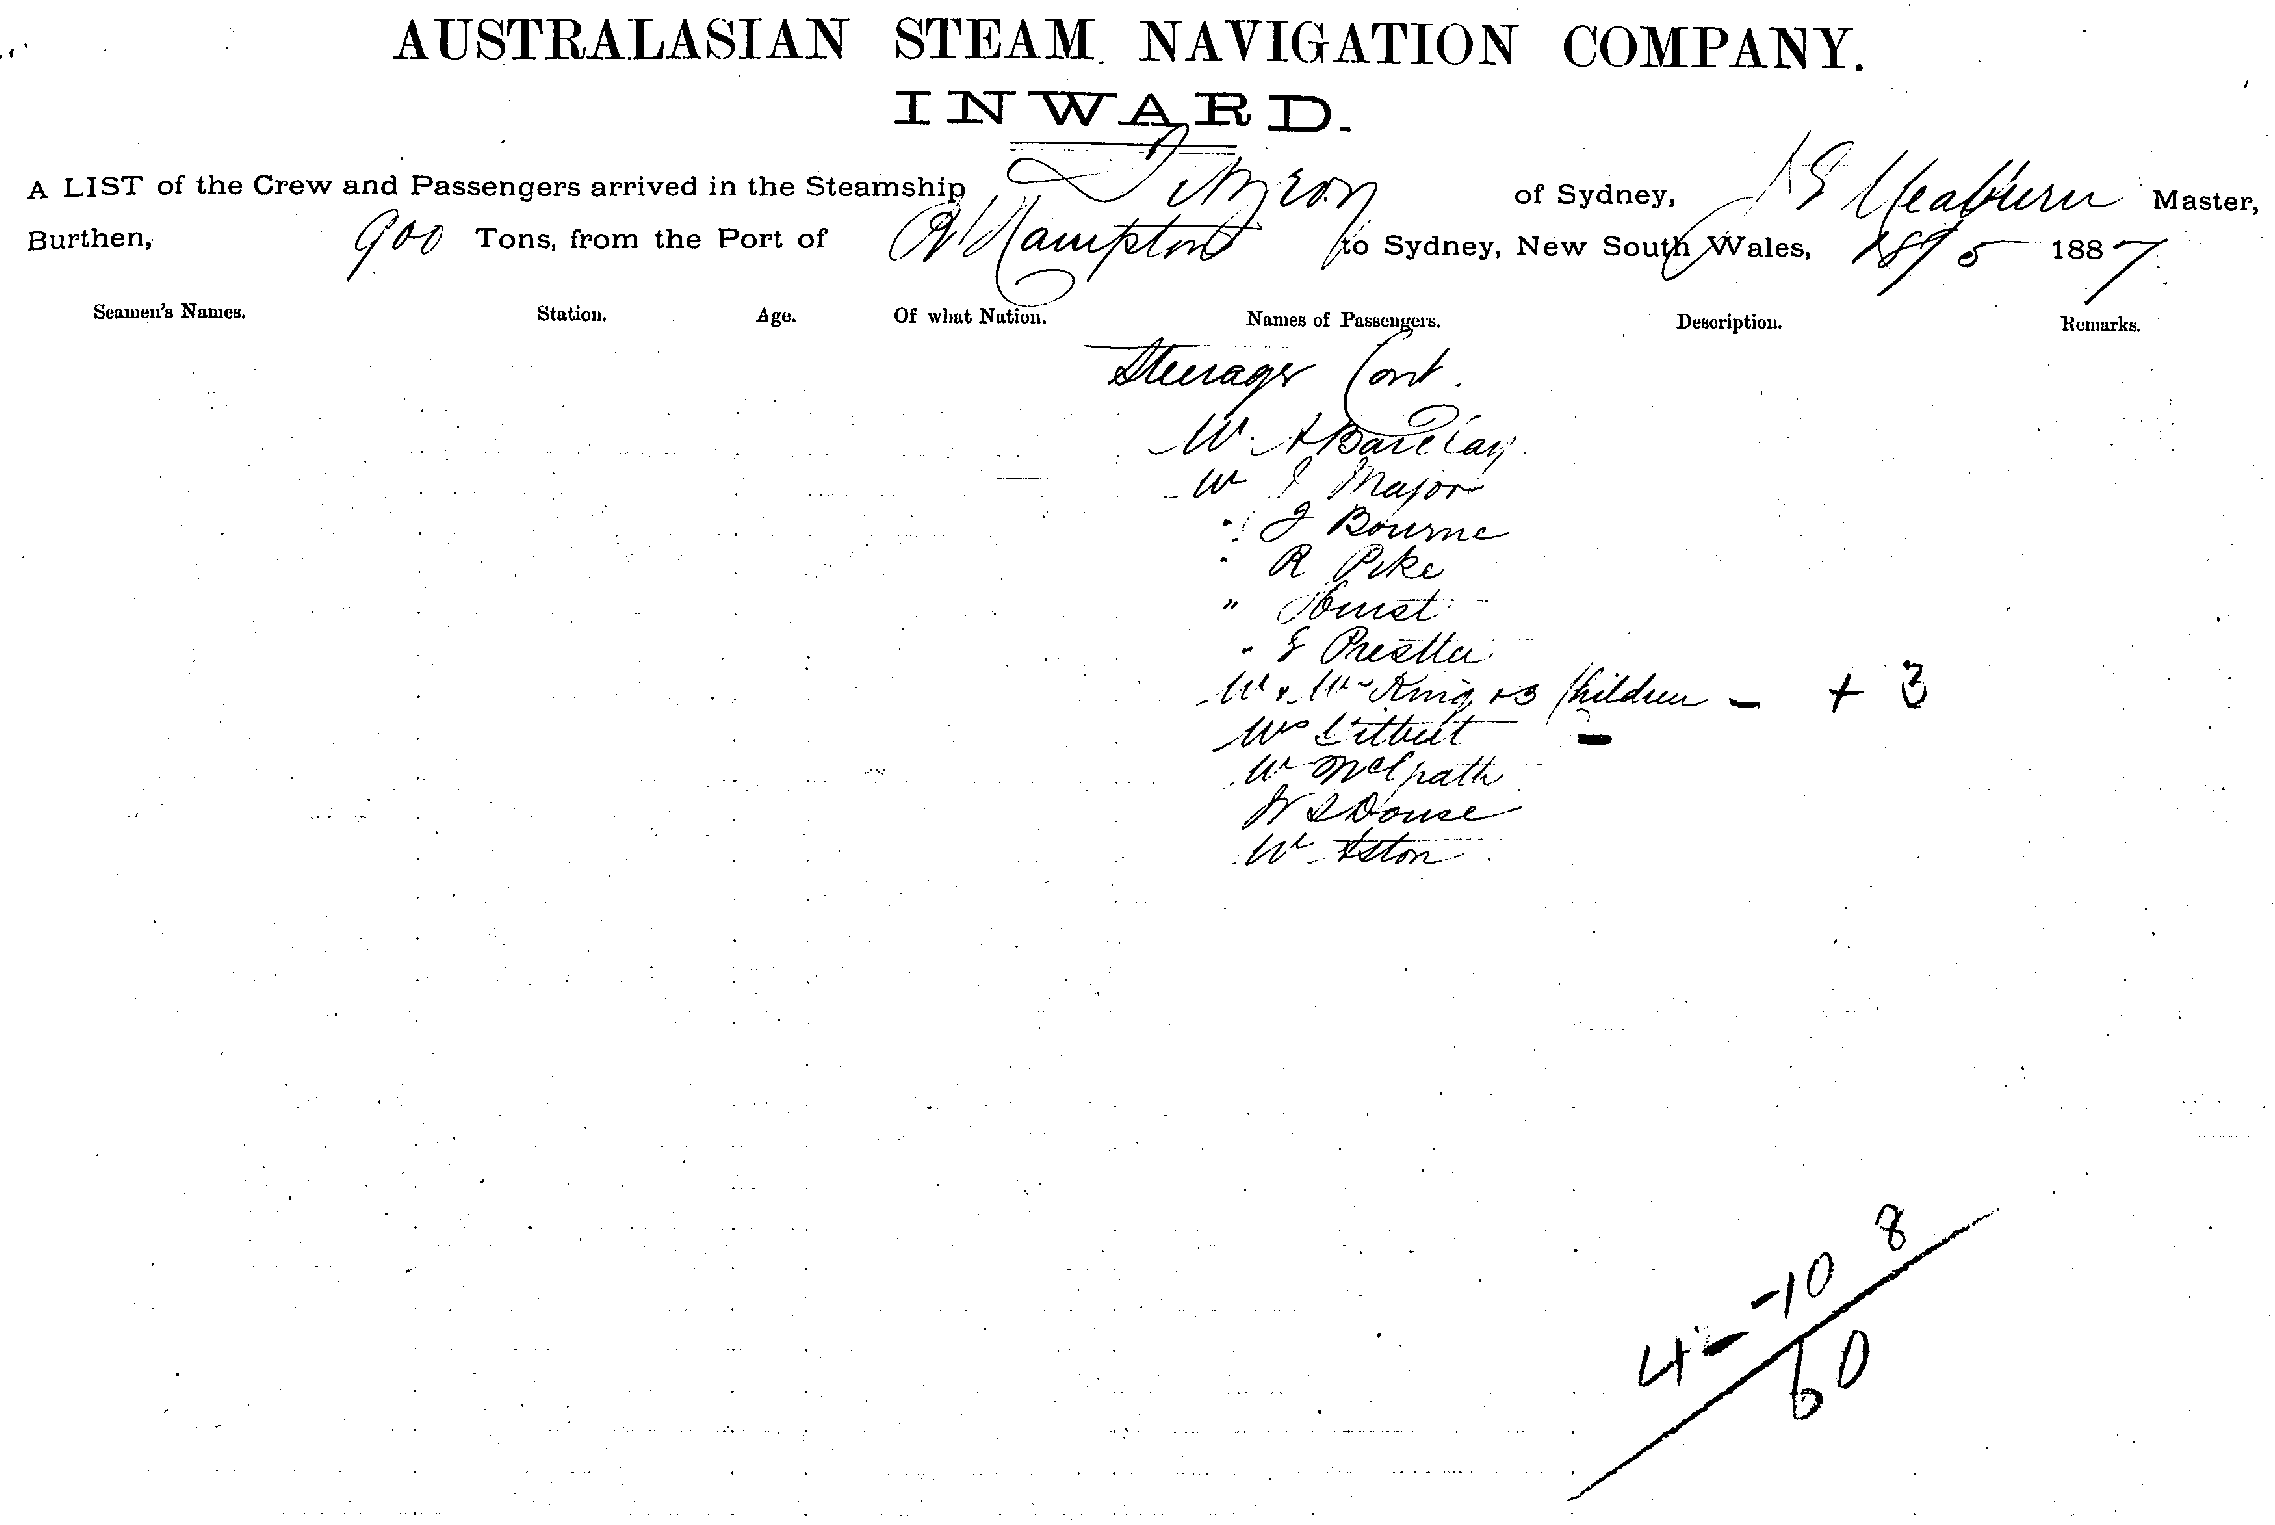 AUSTRALASIAN STEAM NAVIGATION COMPANY.
INWARD.
A LIST of the Crew and Passengers arrived in the Steamship of Sydney, Master,
Burthen, 900 Tons, from the Port of R'Hampton to Sydney, New South Wales, 28/5 1887
Seamen's Names. Station. Age. Of what Nation. Names of Passengers. Description. Remarks.
Steerage Cont.
Mr A Barclay
Mr J Major
" J Bourne
" R Pike
" Hurst
" E
Mr & Mrs King & 3 Children - + 3
Mr -
Mr
Douse
Mr Aston
8
-10
4 -
60